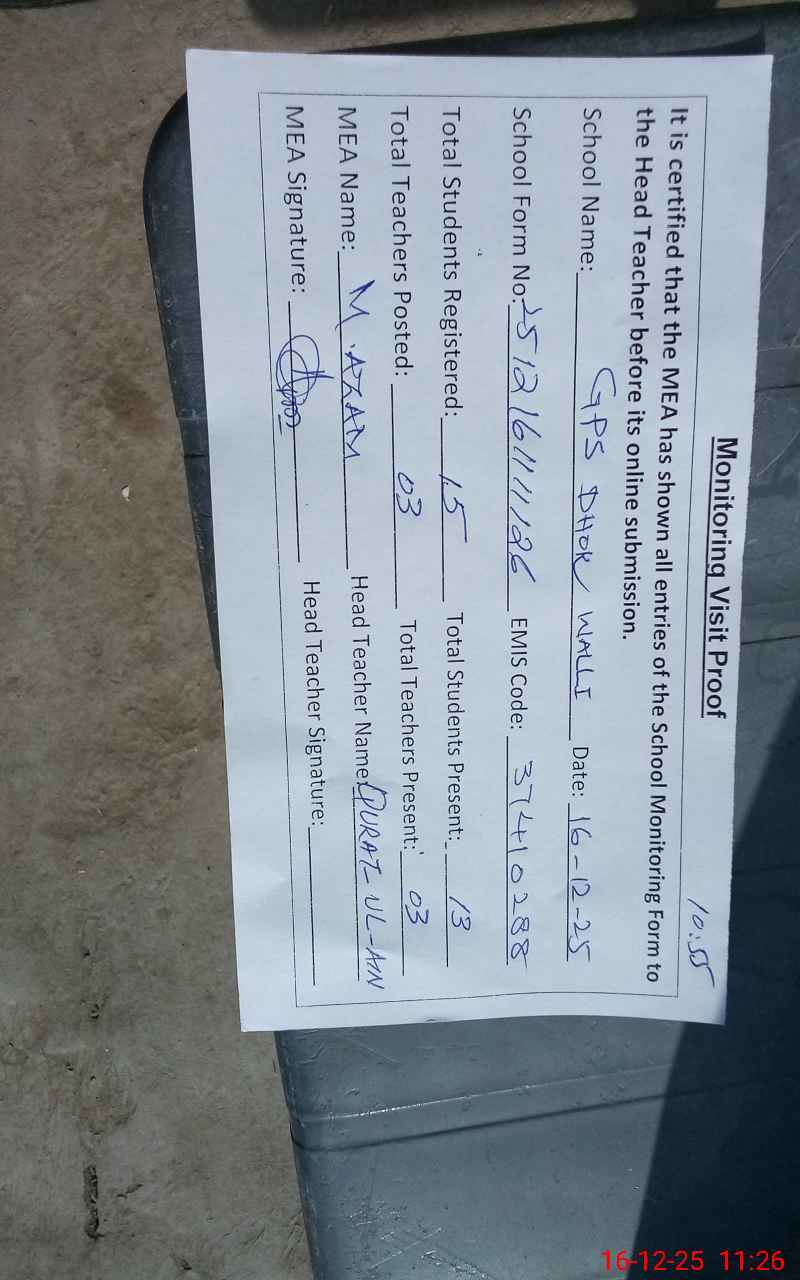 10:55
Monitoring Visit Proof
It is certified that the MEA has shown all entries of the School Monitoring Form to
the Head Teacher before its online submission.
School Name: GPS DHOK WALLI Date: 16-12-25
School Form No: 251216111126 EMIS Code: 37410288
Total Students Registered: 15 Total Students Present: 13
Total Teachers Posted: 03 Total Teachers Present: 03
MEA Name: M. AZAM Head Teacher Name: QURAT-UL-AIN
MEA Signature: Head Teacher Signature:
16-12-25 11:26